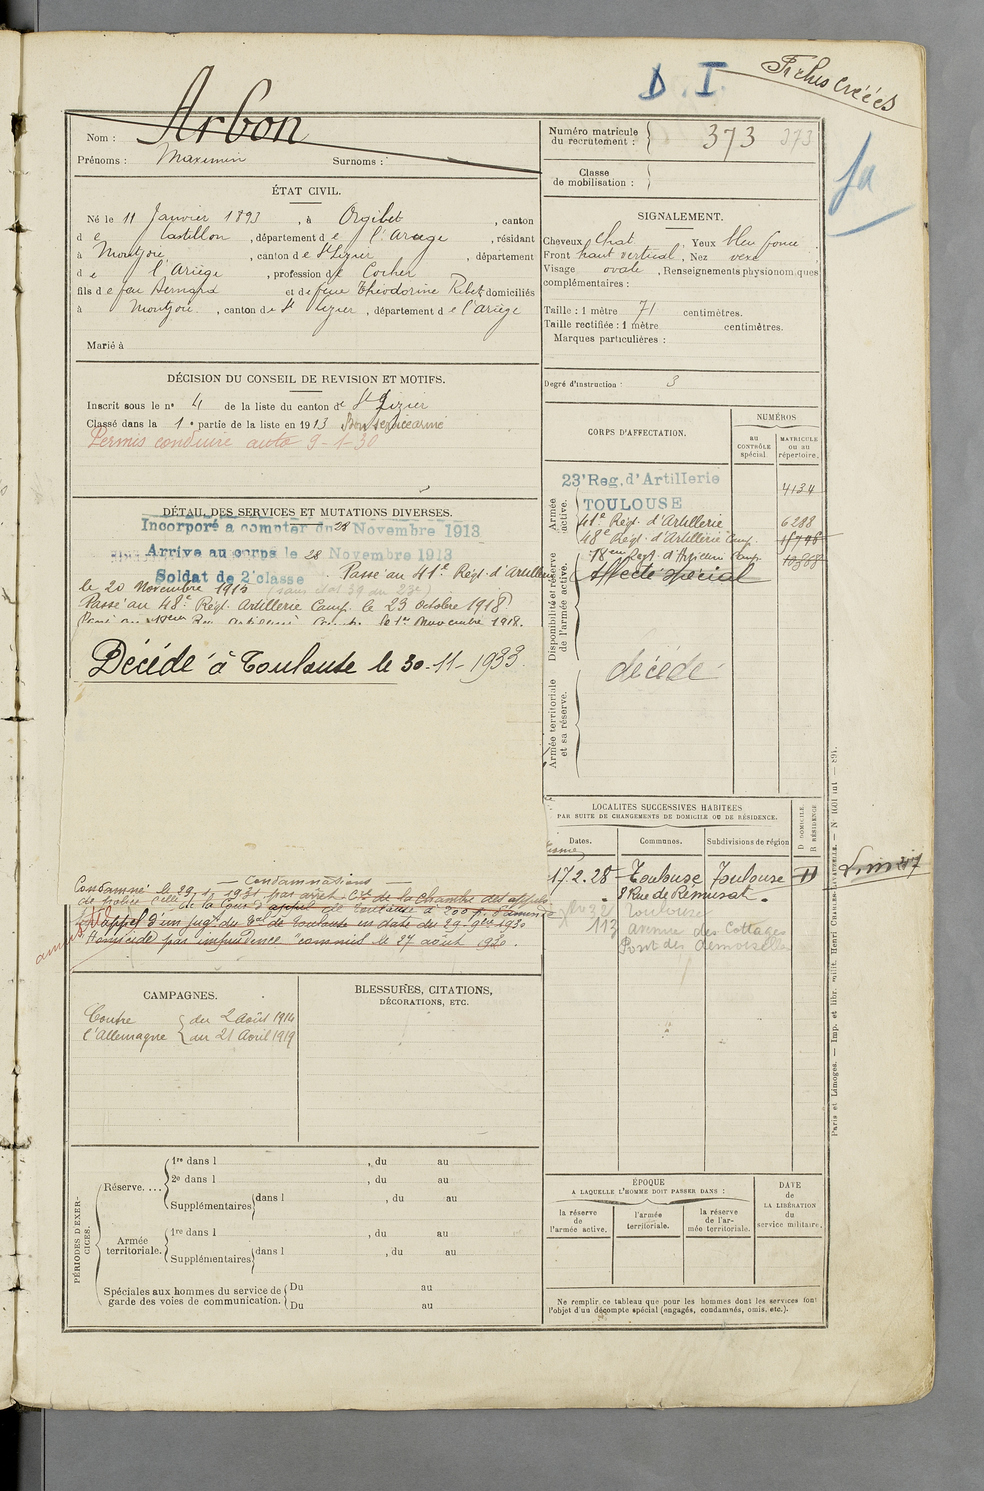 D. I.
Fiches créées
fa
Nom : Arbon
Prénoms : Maximin Surnoms :
Numéro matricule du recrutement : 373 373
Classe de mobilisation :
ÉTAT CIVIL.
Né le 11 Janvier 1893, à Orgibet, canton
de Castillon, département de l'Ariège, résidant
à Montjoie, canton de St Lizier, département
de l'Ariège, profession de Cocher
fils de feu Bernard et de feue Théodorine Ribet domiciliés
à Montjoie, canton de St Lizier, département de l'Ariège
Marié à
SIGNALEMENT.
Cheveux chat. Yeux bleu foncé.
Front haut vertical, Nez vexe
Visage ovale, Renseignements physionomiques
complémentaires :
Taille : 1 mètre 71 centimètres.
Taille rectifiée : 1 mètre centimètres.
Marques particulières :
Degré d'instruction : 3
DÉCISION DU CONSEIL DE REVISION ET MOTIFS.
Inscrit sous le no 4 de la liste du canton de St Lizier
Classé dans la 1e partie de la liste en 1913 Bon service armé
Permis conduire auto 9-1-30
DÉTAIL DES SERVICES ET MUTATIONS DIVERSES.
Incorporé à compter du 28 Novembre 1913
Arrivé au corps le 28 Novembre 1913
Soldat de 2e classe Passé au 41e Régt. d'Artillerie
le 20 Novembre 1915
Passé au 48e Régt. Artillerie Camp. le 23 Octobre 1918
le 1er Novembre 1918.
Décédé à Toulouse le 30-11-1933.
CORPS D'AFFECTATION.
NUMÉROS
au CONTRÔLE spécial.
MATRICULE ou au répertoire.
Armée active.
23e Reg. d'Artillerie 4134
TOULOUSE
41e Régt. d'Artillerie 6288
48e Régt. d'Artillerie Camp.
18eme Regt. d'Artillerie Camp.
Affecté Spécial
Disponibilité et réserve de l'armée active.
décédé
Armée territoriale et sa réserve.
LOCALITÉS SUCCESSIVES HABITÉES
PAR SUITE DE CHANGEMENTS DE DOMICILE OU DE RÉSIDENCE.
Dates. Communes. Subdivisions de région D DOMICILE. R RÉSIDENCE
17.2.28 Toulouse Toulouse
8 Rue de Rémusat.
Toulouse
113 avenue des Cottages
Pont des demoiselles
Condamnations
Condamné le 29 1931 par arrêt de la Chambre des appels
de police de la Cour d'appel de Toulouse à 200 f. d'amende
appel d'un jugt du de Toulouse en date du 29 1930
Homicide par imprudence "commis le 27 août 1930.
CAMPAGNES.
Contre l'Allemagne
du 2 Août 1914
au 21 Avril 1919
BLESSURES, CITATIONS,
DÉCORATIONS, ETC.
PÉRIODES D'EXERCICES.
Réserve....
1re dans l , du au
2e dans l , du au
Supplémentaires dans l , du au
Armée territoriale.
1re dans l , du au
Supplémentaires dans l , du au
Spéciales aux hommes du service de garde des voies de communication.
Du au
Du au
ÉPOQUE
A LAQUELLE L'HOMME DOIT PASSER DANS :
la réserve de l'armée active.
l'armée territoriale.
la réserve de l'armée territoriale.
DATE de LA LIBÉRATION du service militaire.
Ne remplir ce tableau que pour les hommes dont les services font
l'objet d'un décompte spécial (engagés, condamnés, omis, etc.).
Paris et Limoges. — Imp. et libr. milit. Henri CHARLES-LAVAUZELLE.